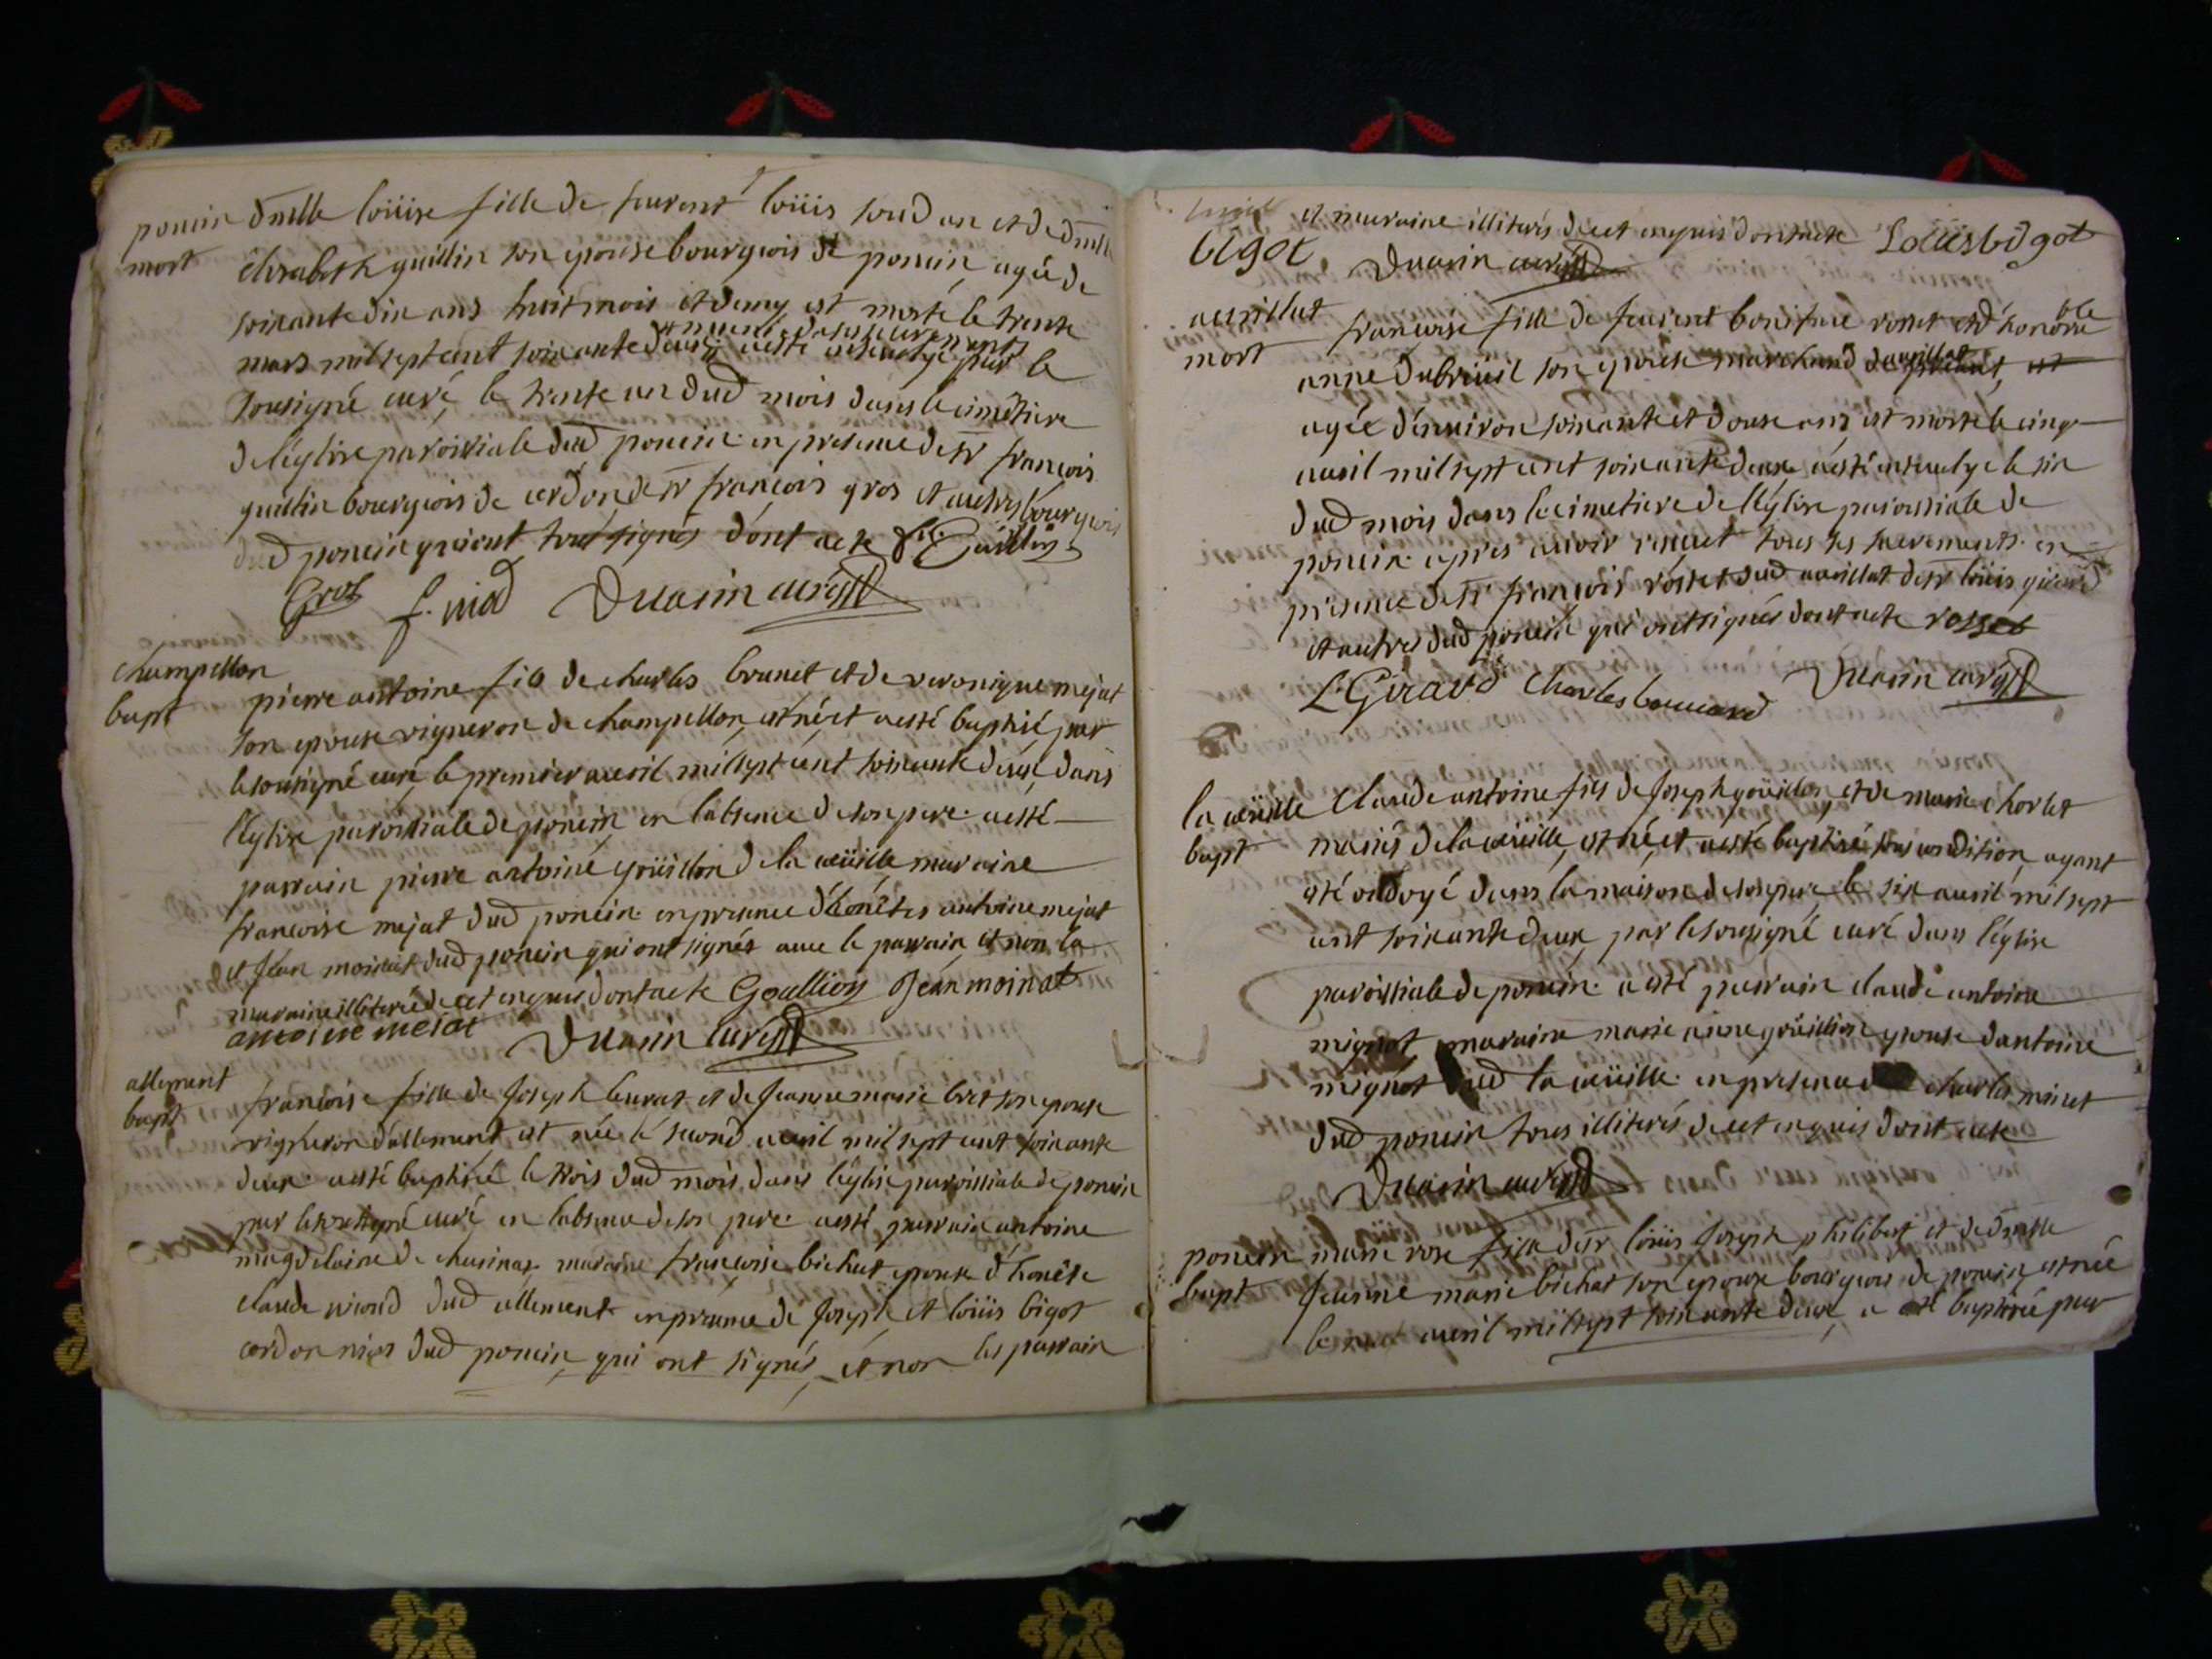 poncin dmlle loüise fille de feu vent loüis soud an et de dmlle
mort elisabeth guillin son epouse bourgeois de poncin, agée de
soixante dix ans huit mois et demy est morte le trente
mars mil sept cent soixante deux, munie des sacrements a esté ensevelye par le
sousigné curé, le trente un dud mois dans le cimetiere
de l'église paroissiale dud poncin en presence de sr francois
guillin bourgeois de cerdon, de sr francois gros et autres bourgeois
dud poncin qui ont tous signés dont acte Guillin
Gros f. Duasin curé
champellon
bapt pierre antoine fils de charles brunet et de veronique mejat
son epouse vigneron de champellon, est né, et a esté baptisé par
le sousigné curé, le premier avril mil sept cent soixante deux, dans
l'église paroissiale de poncin en l'absence de son pere a esté
parrain pierre antoine goüillon de la cueïlle marraine
francoise mejat dud poncin en presence d'honêtes antoine mejat
et jean moinat dud poncin qui ont signés avec le parrain, et non la
marraine illiterée de cet enquis dont acte Goullion Jean moinat
antoine meiat Duasin curé
allement
bapt francoise fille de joseph leurat et de jeanne marie bret son epouse
vigneron d'allement est née le second avril mil sept cent soixante
deux a esté baptisée le trois dud mois, dans l'église paroissiale de poncin
par le sousigné curé en l'absence de son pere a esté parrain antoine
magdelaine de chasinas marraine francoise bichat epouse d'honête
claude niond dud allement en presence de joseph, et loüis bigot
cordonniers dud poncin, qui ont signés, et non les parrain
et marraine illiterés de cet enquis dont acte Loüis bigot
bigot Duasin curé
avrillat
mort francoise fille de feu vincent boniface rosset et d'honorable
anne dubrüeil son epouse marchand d'avrillat
agée d'environ soixante et douse ans est morte le cinq
avril mil sept cent soixante deux, a esté ensevelye le six
dud mois dans le cimetiere de l'église paroissiale de
poncin apres avoir receuet tous ses sacrements en
presence de sr francois rosset dud avrillat de sr loüis girard
et autres dud poncin qui ont signés dont acte rosset
L Girard Charles bouvard Duasin curé
la cueïlle Claude antoine fils de joseph goüillon, et de marie chorlet
bapt mariés de la cueïlle, est né, et a esté baptisé sous condition, ayant
esté ondoyé dans la maison de son pere, le six avril mil sept
cent soixante deux, par le sousigné curé dans l'église
paroissiale de poncin a esté parrain claude antoine
mignot, marraine marie anne goüillion epouse d'antoine
mignot dud la cueïlle en presence de charles minet
dud poncin tous illiterés de cet enquis dont acte
Duasin curé
poncin marie rose fille de sr loüis joseph philibert et de dmlle
bapt jeanne marie bichat son epouse bourgeois de poncin, est née
le avril mil sept soixante deux, a esté baptisée par